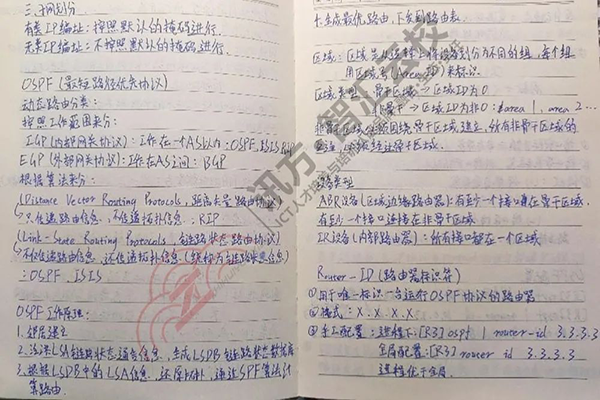 三.子网划分
有类IP编址：按照默认的掩码进行.
无类IP编址：不按照默认的掩码进行.
OSPF（最短路径优先协议）
动态路由分类：
按照工作范围来分：
IGP（内部网关协议）：工作在一个AS以内：OSPF、ISIS、RIP
EGP（外部网关协议）：工作在AS之间：BGP
根据算法来分：
(Distance Vector Routing Protocols，距离矢量路由协议)
只传递路由信息，不传递拓扑信息：RIP
(Link-State Routing Protocols，链路状态路由协议)
不仅传递路由信息，还传递拓扑信息(统称为链路状态信息)
：OSPF、ISIS
OSPF工作原理：
1.邻居建立
2.泛洪LSA链路状态通告信息，生成LSDB链路状态数据库
3.根据LSDB中的LSA信息，还原拓扑，通过SPF算法计
算路由.
4.生成最优路由，下发到路由表
区域：区域是从逻辑上将设备划分为不同的组，每个组
用区域号(Area ID)来标识.
区域类型：骨干区域→区域ID为0
非骨干→区域ID为非0：area 1, area 2...
非骨干区域必须围绕骨干区域建立，所有非骨干区域的
必须连接骨干区域.
ABR设备(区域边界路由器)：有至少一个接口属在骨干区域，
有至少一个接口连接在非骨干区域.
IR设备(内部路由器)：所有接口都在一个区域
Router-ID（路由器标识符）
①用于唯一标识一台运行OSPF协议的路由器
②格式：X.X.X.X
③手工配置：进程下：[R3]ospf 1 router-id 3.3.3.3
全局配置：[R3]router id 3.3.3.3
进程优于全局.
讯方·智汇云校
ICT人才培养与培